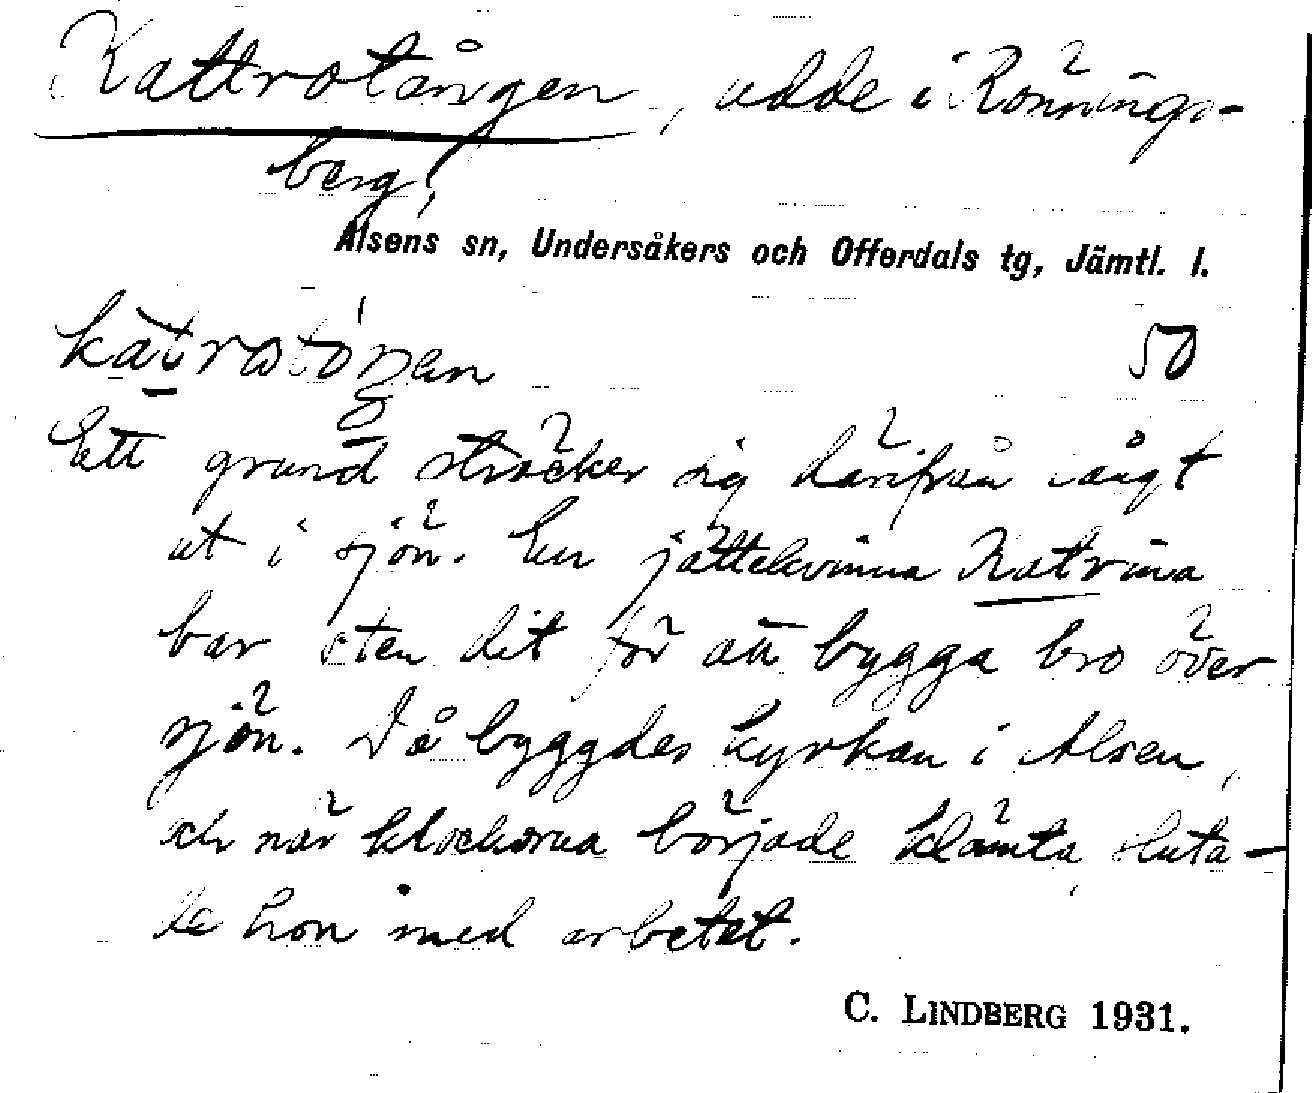 Kattrotången, udde i Rönnings-
berg,
Alsens sn, Undersåkers och Offerdals tg, Jämtl. l.
50
Ett grund sträcker sig därifrån långt
ut i sjön. En jättekvinna Katrina
bar sten dit för att bygga bro över
sjön. Då byggdes kyrkan i Alsen,
och när klockorna började klämta, sluta-
de hon med arbetet.
C. LINDBERG 1931.